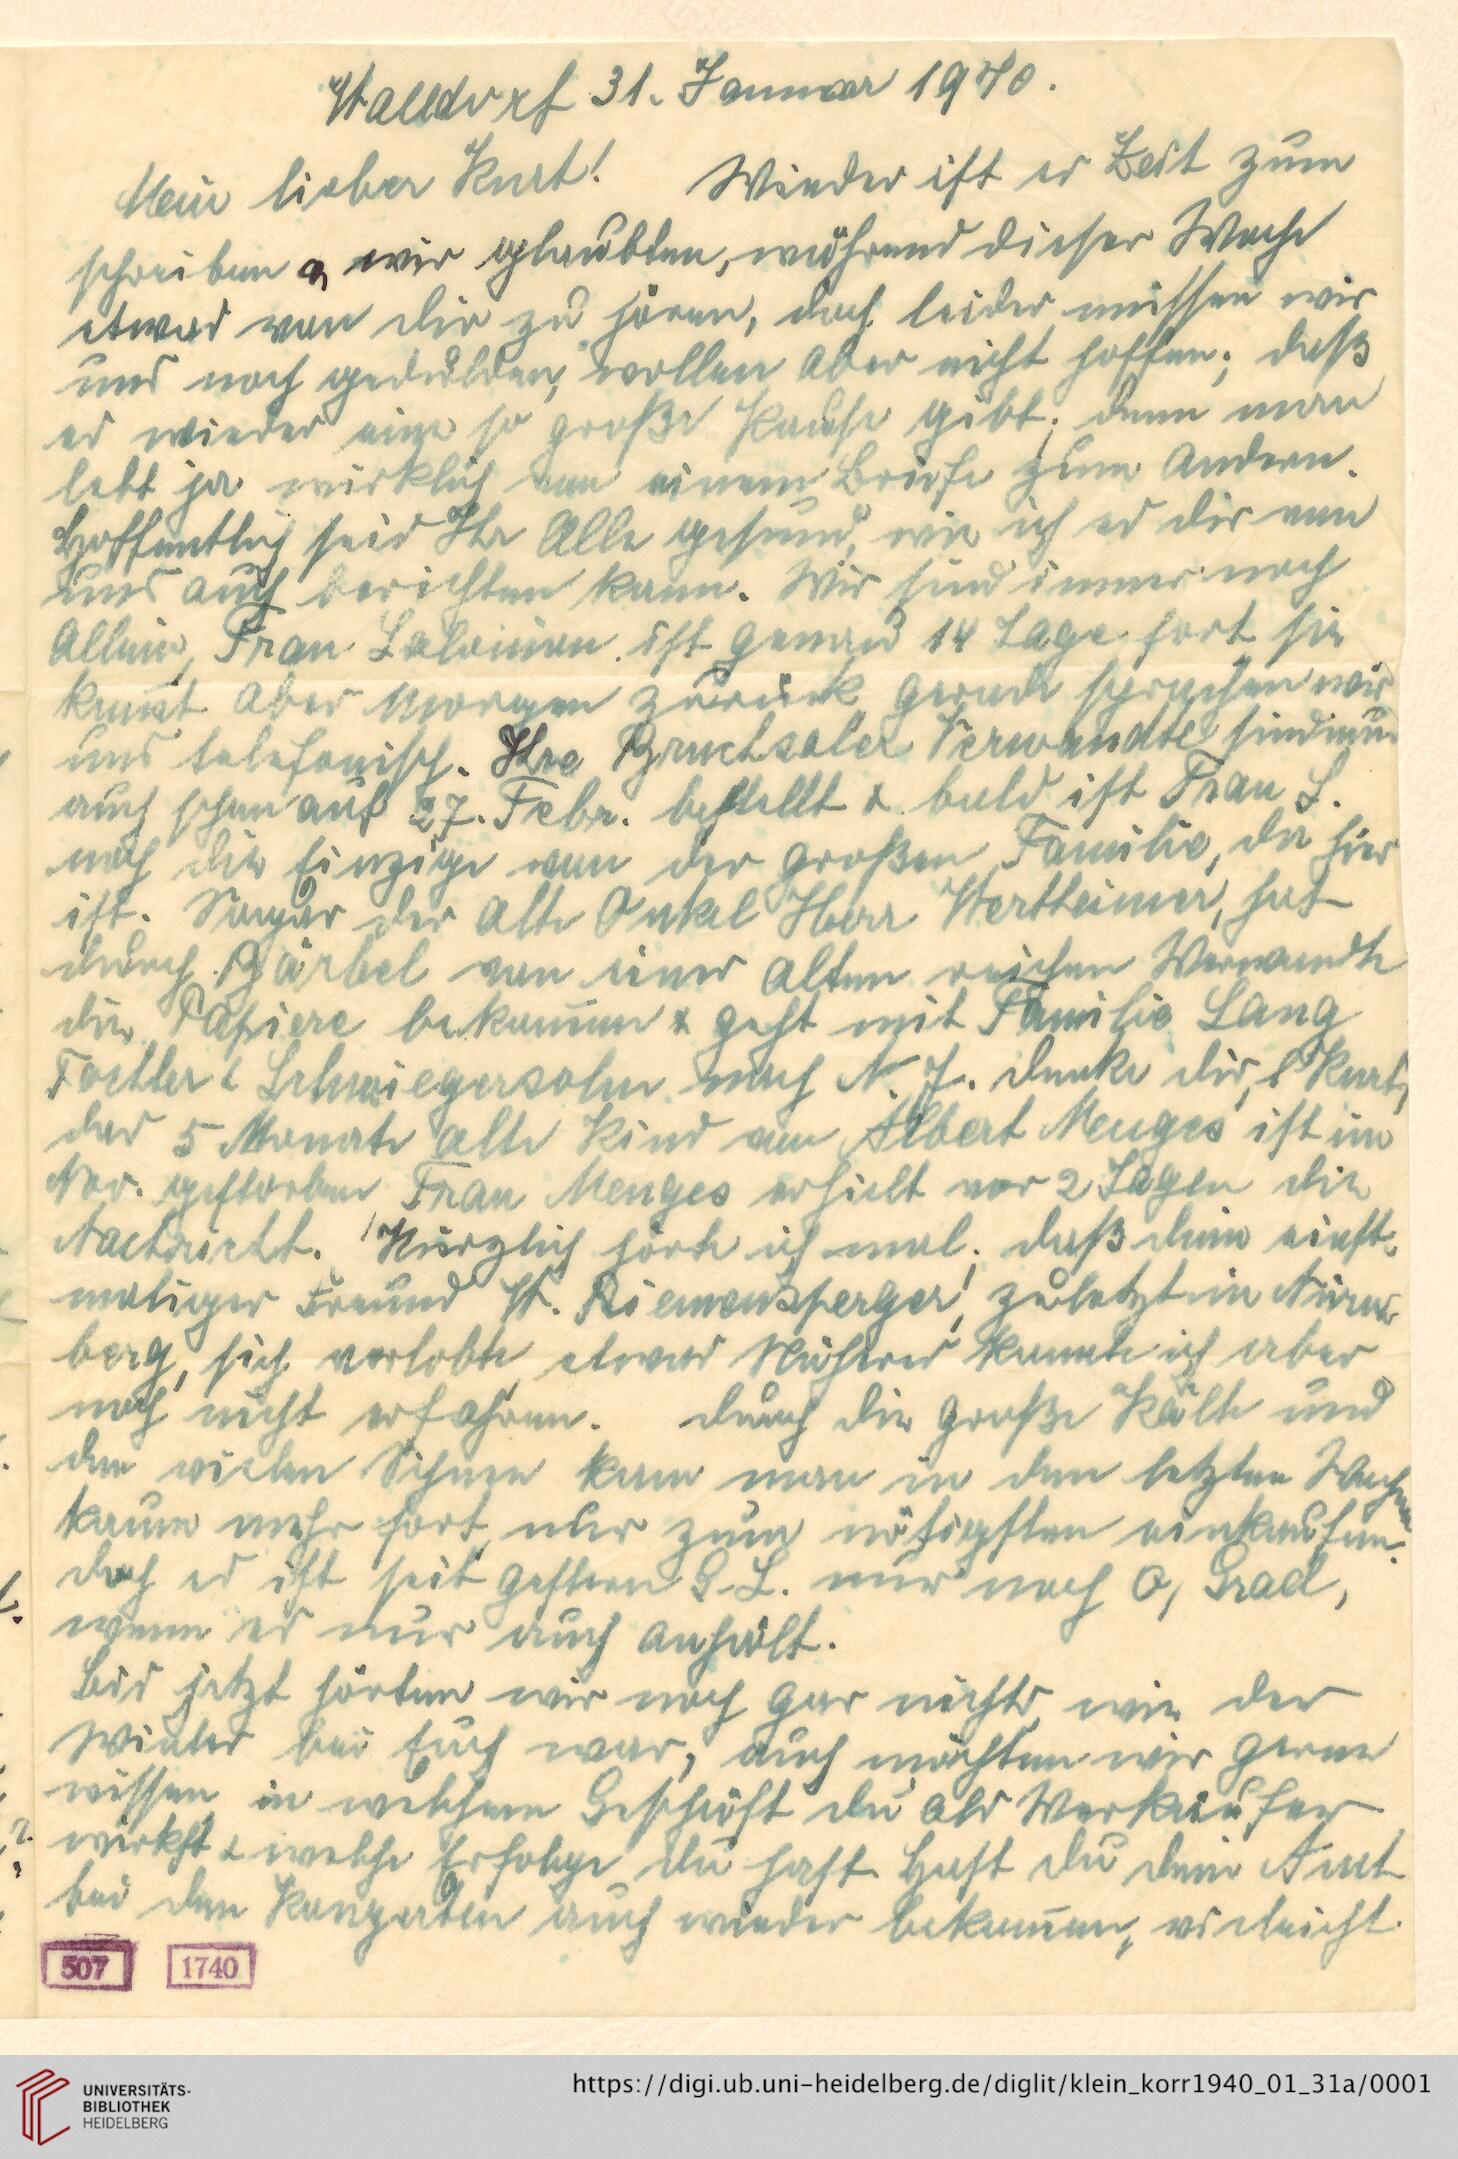 Walldorf 31. Januar 1940.
Mein lieber Kurt! Wieder ist es Zeit zum
schreiben & wir glaubten, während dieser Woche
etwas von dir zu hören, doch leider müssen wir
uns noch gedulden, wollen aber nicht hoffen, daß
es wieder eine so große Pause gibt, denn man
lebt ja wirklich von einem Briefe zum Andern.
Hoffentlich seid Ihr Alle gesund, wie ich es dir von
uns auch berichten kann. Wir sind immer noch
Allein, Frau Salomon ist genau 14 Tage fort sie
kom̅t aber Morgen zurück gerade sprachen wir
uns telefonisch. Ihre Bruchsaler Verwandte sind nun
auch schon auf 27. Febr. bestellt & bald ist Frau S.
noch die Einzige von der großen Familie, die hier
ist. Sogar der alte Onkel Herr Wertheimer, hat
durch Bärbel von einer alten reichen Verwandte
die Papiere bekom̅en & geht mit Familie Lang
Tochter & Schwiegersohn nach N. J. denke dir, l. Kurt,
das 5 Monate alte Kind von Albert Menges ist im
Nov. gestorben Frau Menges erhielt vor 2 Tagen die
Nachricht. Kürzlich hörte ich mal, daß dein einst-
maliger Freund W. Riemensperger, zuletzt in Nürn-
berg, sich verlobte, etwas Näheres konnte ich aber
noch nicht erfahren. durch die große Kälte und
den vielen Schnee kam man in den letzten Wochen
kaum mehr fort, nur zum nötigsten einkaufen.
doch es ist seit gestern G. L. nur noch 0, Grad,
wenn es nur auch anhält.
Bis jetzt hörten wir noch gar nichts wie der
Winter bei Euch war, auch möchten wir gerne
wissen in welchem Geschäft du als Verkäufer
wirkst & welche Erfolge du hast. Hast du dein Amt
bei den Konzerten auch wieder bekom̅en, vieleicht
507 1740
UNIVERSITÄTS-
BIBLIOTHEK
HEIDELBERG
https://digi.ub.uni-heidelberg.de/diglit/klein_korr1940_01_31a/0001